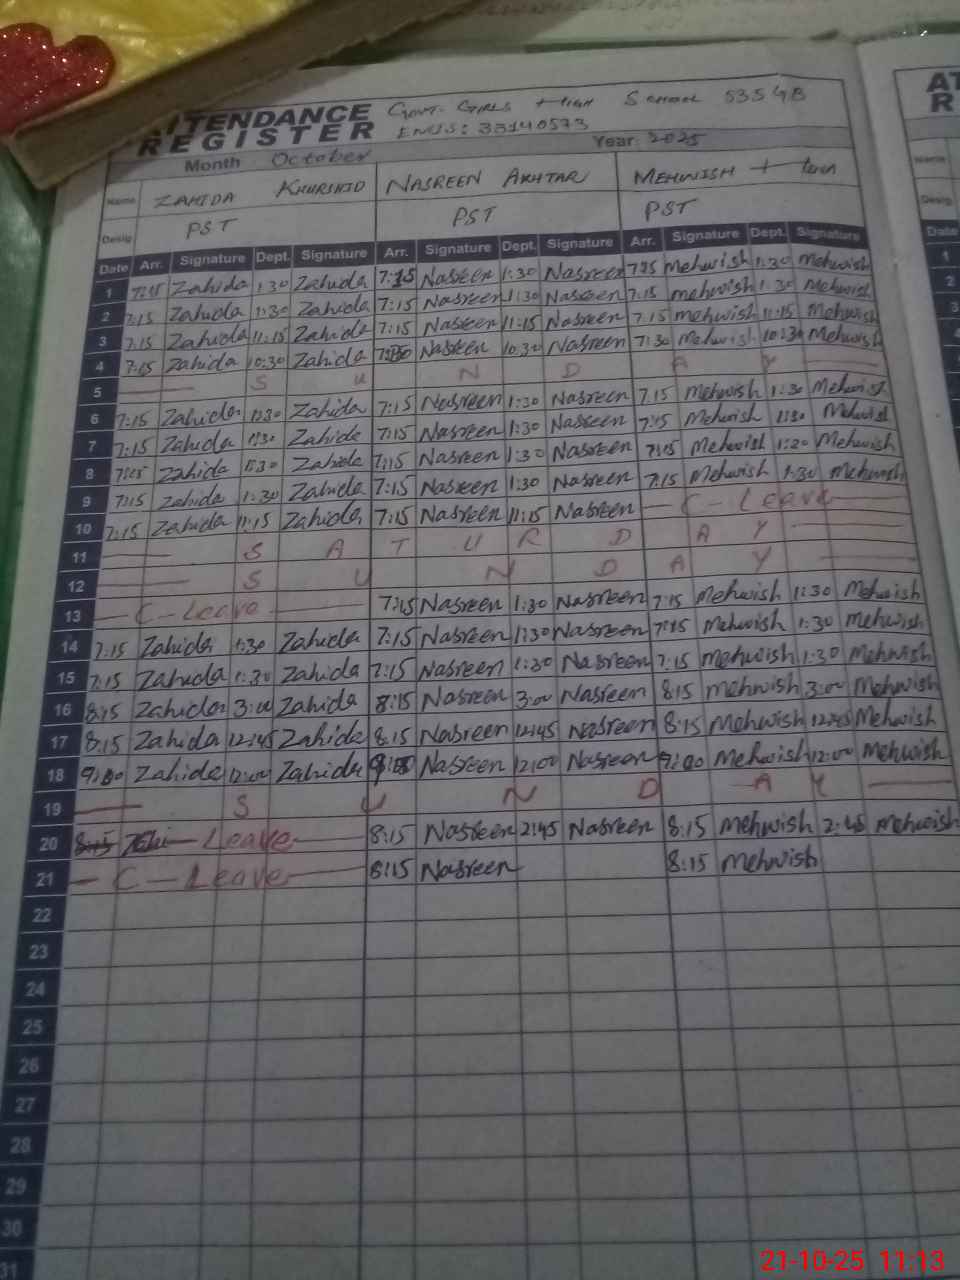 ATTENDANCE REGISTER
GOVT. GIRLS High School 535 GB
EMIS: 33140573
Month October Year: 2025
Name ZAHIDA KHURSHID NASREEN AKHTAR MEHWISH
Desig PST PST PST
Date Arr. Signature Dept. Signature Arr. Signature Dept. Signature Arr. Signature Dept. Signature
1 7:15 Zahida 1:30 Zahida 7:15 Nasreen 1:30 Nasreen 7:15 Mehwish 1:30 Mehwish
2 7:15 Zahida 1:30 Zahida 7:15 Nasreen 1:30 Nasreen 7:15 mehwish 1:30 Mehwish
3 7:15 Zahida 11:15 Zahida 7:15 Nasreen 11:15 Nasreen 7:15 mehwish 11:15 Mehwish
4 Zahida 10:30 Zahida Nasreen 10:30 Nasreen 7:30 Mehwish 10:30 Mehwish
5 S U N D A Y
6 7:15 Zahida 1:30 Zahida 7:15 Nasreen 1:30 Nasreen 7:15 Mehwish 1:30 Mehwish
7 7:15 Zahida 1:30 Zahida 7:15 Nasreen 1:30 Nasreen 7:15 Mehwish 1:30 Mehwish
8 7:15 Zahida 1:30 Zahida 7:15 Nasreen 1:30 Nasreen 7:15 Mehwish Mehwish
9 7:15 Zahida 1:30 Zahida 7:15 Nasreen 1:30 Nasreen 7:15 Mehwish 1:30 Mehwish
10 7:15 Zahida 11:15 Zahida 7:15 Nasreen 11:15 Nasreen C-Leave
11 S A T U R D A Y
12 S U N D A Y
13 C-Leave 7:15 Nasreen 1:30 Nasreen 7:15 Mehwish 1:30 Mehwish
14 7:15 Zahida 1:30 Zahida 7:15 Nasreen 1:30 Nasreen 7:15 Mehwish 1:30 mehwish
15 7:15 Zahida 1:30 Zahida 7:15 Nasreen 1:30 Nasreen 7:15 Mehwish 1:30 Mehwish
16 8:15 Zahida 3:00 Zahida 8:15 Nasreen 3:00 Nasreen 8:15 mehwish 3:00 Mehwish
17 8:15 Zahida 12:45 Zahida 8:15 Nasreen 12:45 Nasreen 8:15 Mehwish 12:45 Mehwish
18 9:00 Zahida 12:00 Zahida Nasreen 12:00 Nasreen 9:00 Mehwish 12:00 Mehwish
19 S U N D A Y
20 8:15 Leave 8:15 Nasreen 2:45 Nasreen 8:15 Mehwish 2:45 Mehwish
21 C-Leave 8:15 Nasreen 8:15 Mehwish
22
23
24
25
26
27
28
29
30
31
AT
R
Name
Desig
Date
1
2
3
4
21-10-25 11:13